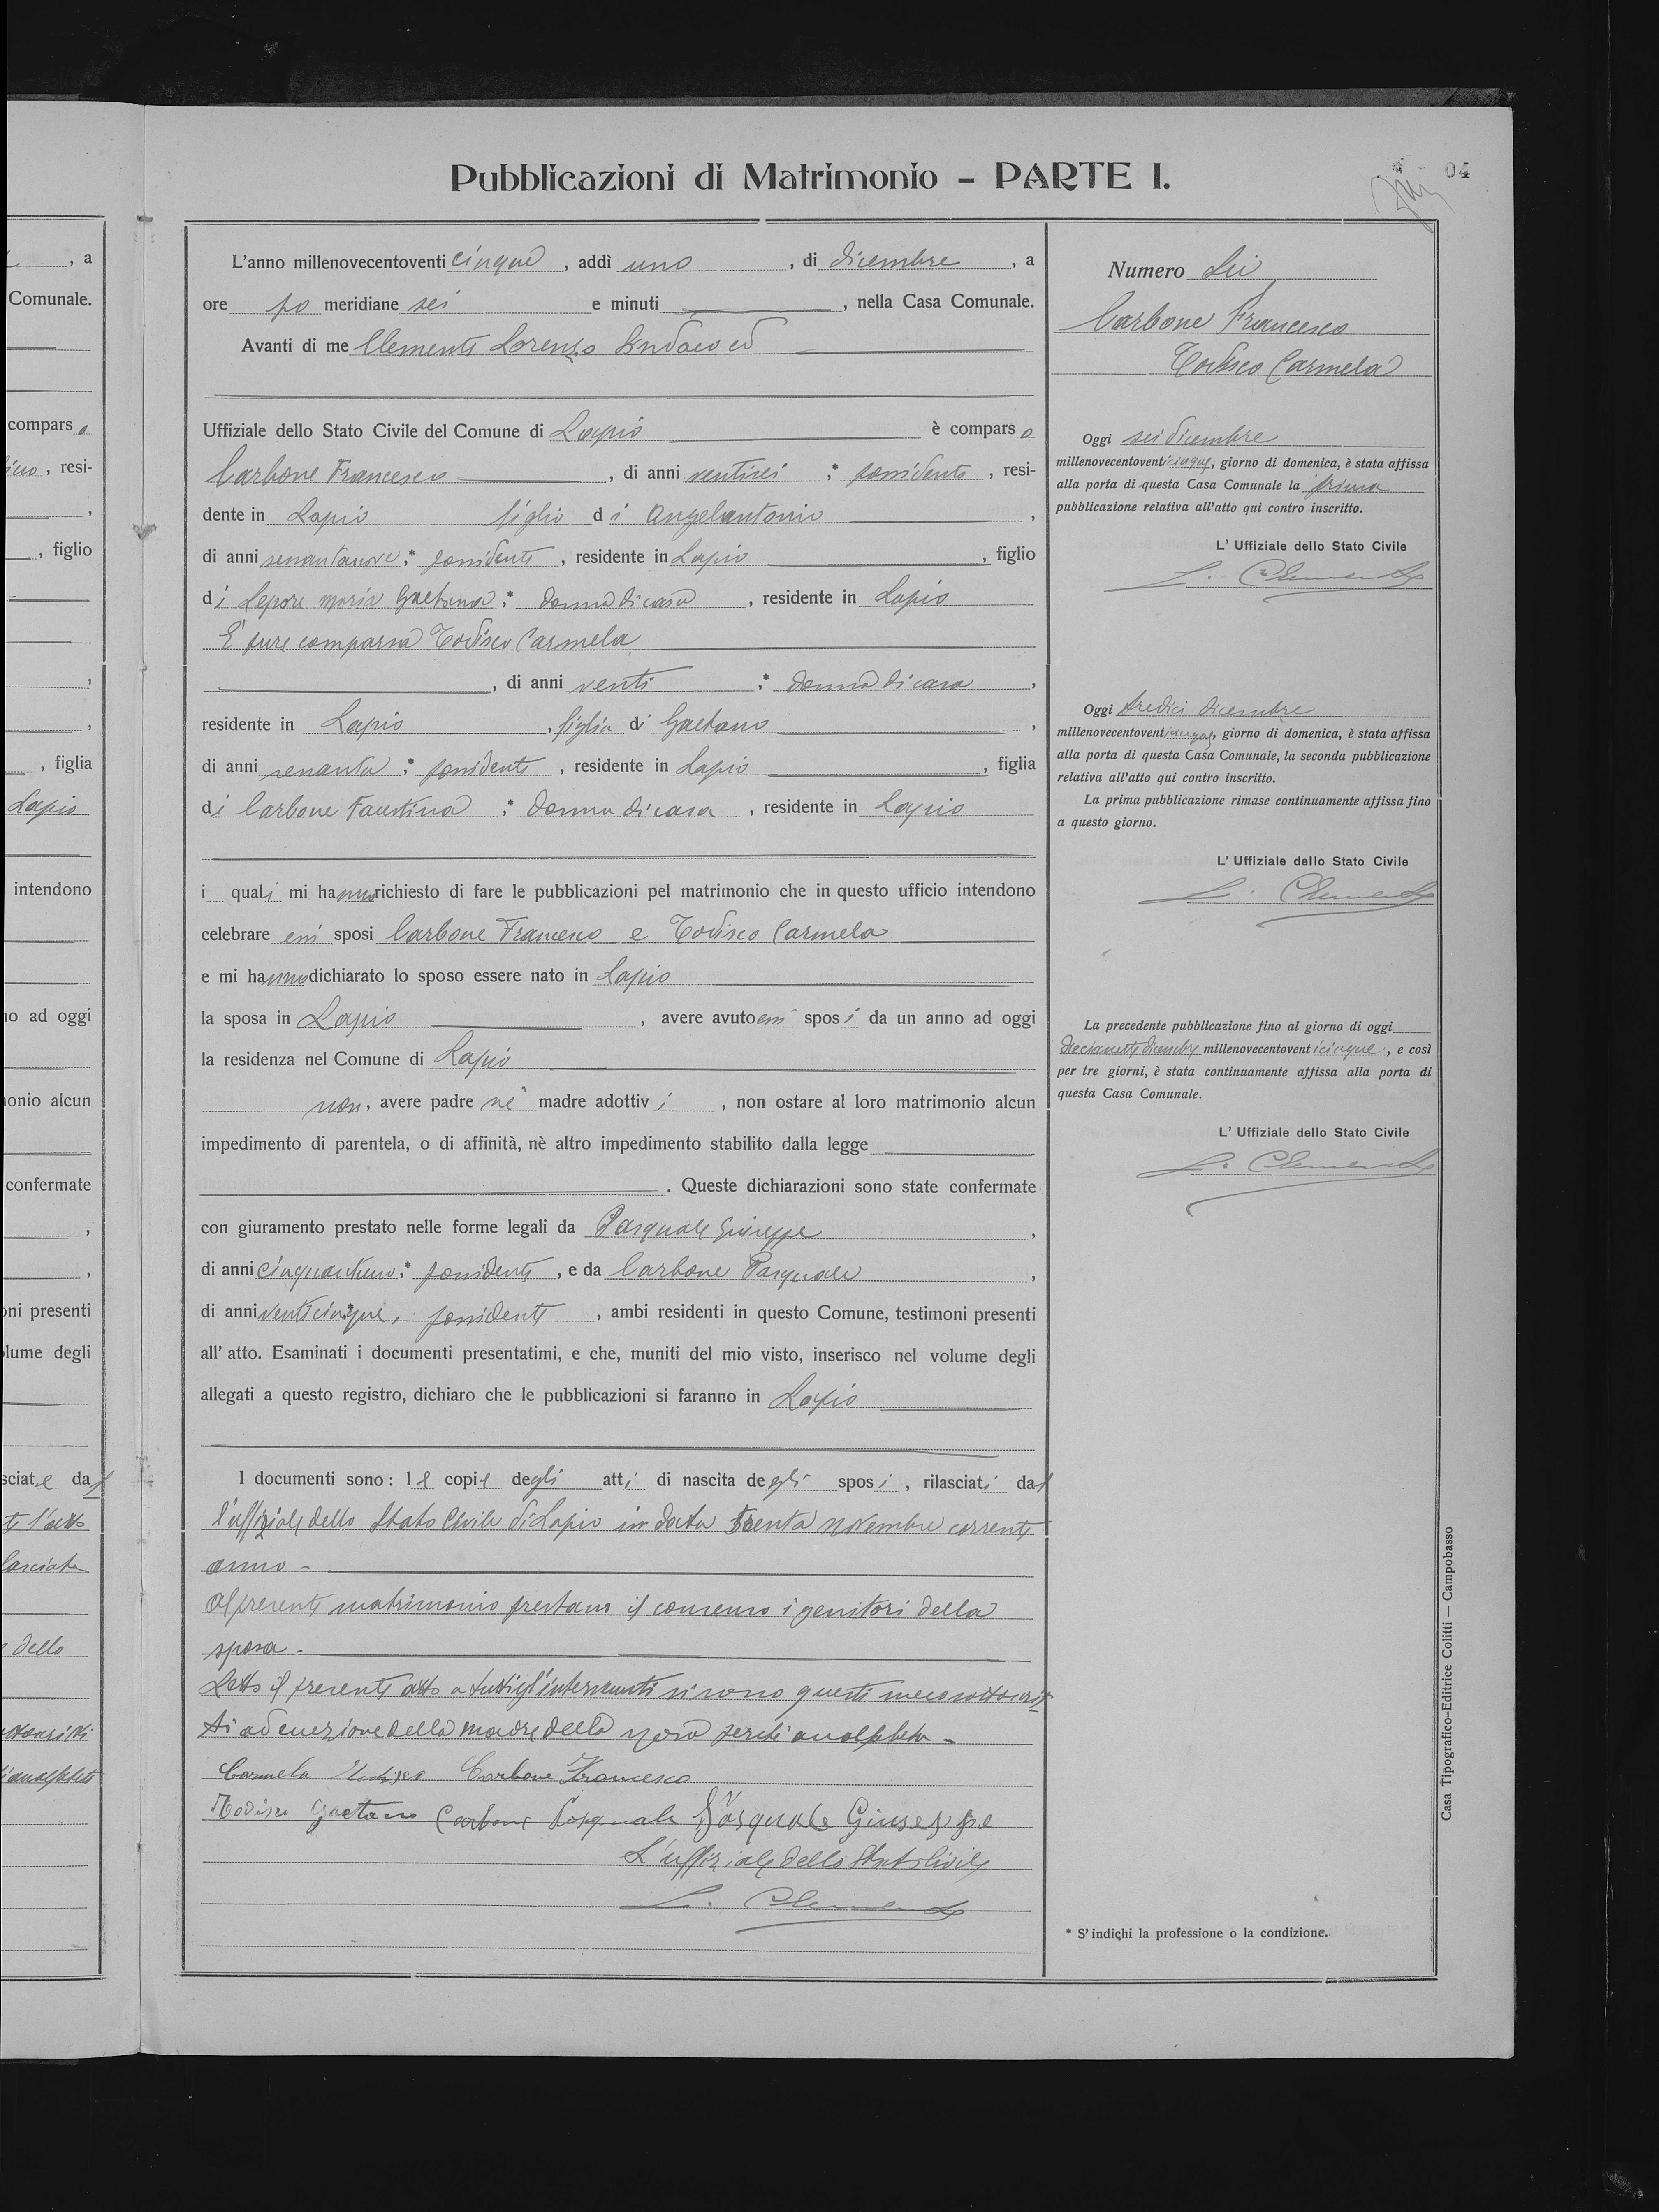 Pubblicazioni di Matrimonio - PARTE I.
04
L'anno millenovecentoventicinque, addì uno, di dicembre, a
ore po meridiane sei e minuti, nella Casa Comunale.
Avanti di me Clemente Lorenzo Sindaco ed
Uffiziale dello Stato Civile del Comune di Lapio è comparso
Carbone Francesco, di anni ventisei :* possidente, resi-
dente in Lapio figlio di Angelantonio,
di anni sessantanove :* possidente, residente in Lapio, figlio
di Lepore Maria Gaetana :* donna di casa, residente in Lapio
È pure comparsa Todisco Carmela
, di anni venti :* donna di casa,
residente in Lapio, figlia di Gaetano,
di anni sessanta :* possidente, residente in Lapio, figlia
di Carbone Faustina :* donna di casa, residente in Lapio
i quali mi hanno richiesto di fare le pubblicazioni pel matrimonio che in questo ufficio intendono
celebrare essi sposi Carbone Francesco e Todisco Carmela
e mi hanno dichiarato lo sposo essere nato in Lapio
la sposa in Lapio, avere avuto essi sposi da un anno ad oggi
la residenza nel Comune di Lapio
non, avere padre nè madre adottivi, non ostare al loro matrimonio alcun
impedimento di parentela, o di affinità, nè altro impedimento stabilito dalla legge
. Queste dichiarazioni sono state confermate
con giuramento prestato nelle forme legali da Pasquale Giuseppe,
di anni cinquantuno :* possidente, e da Carbone Pasquale,
di anni venticinque, possidente, ambi residenti in questo Comune, testimoni presenti
all'atto. Esaminati i documenti presentatimi, e che, muniti del mio visto, inserisco nel volume degli
allegati a questo registro, dichiaro che le pubblicazioni si faranno in Lapio
I documenti sono: le copie degli atti di nascita degli sposi, rilasciati dal
l'uffiziale dello Stato Civile di Lapio in data trenta novembre corrente
anno -
Al presente matrimonio prestano il consenso i genitori della
sposa.
Letto il presente atto a tutti gl'intervenuti si sono questi meco sottoscrit
ti ad eccezione della madre della sposa perchè analfabeta -
Carmela Todisco Carbone Francesco
Todisco Gaetano Carbone Pasquale Pasquale Giuseppe
L'uffiziale dello Stato Civile
L. Clemente
Numero
Carbone Francesco
Todisco Carmela
Oggi sei dicembre
millenovecentoventicinque, giorno di domenica, è stata affissa
alla porta di questa Casa Comunale la prima
pubblicazione relativa all'atto qui contro inscritto.
L'Uffiziale dello Stato Civile
L. Clemente
Oggi tredici dicembre
millenovecentoventicinque, giorno di domenica, è stata affissa
alla porta di questa Casa Comunale, la seconda pubblicazione
relativa all'atto qui contro inscritto.
La prima pubblicazione rimase continuamente affissa fino
a questo giorno.
L'Uffiziale dello Stato Civile
L. Clemente
La precedente pubblicazione fino al giorno di oggi
diecianette dicembre millenovecentoventicinque, e così
per tre giorni, è stata continuamente affissa alla porta di
questa Casa Comunale.
L'Uffiziale dello Stato Civile
L. Clemente
* S'indichi la professione o la condizione.
Casa Tipografico-Editrice Colitti — Campobasso
, a
Comunale.
compars o
, resi-
,
, figlio
,
,
, figlia
Lapio
intendono
no ad oggi
onio alcun
confermate
,
,
oni presenti
lume degli
sciate dal
te l'atto
lasciata
dello
analfabeti